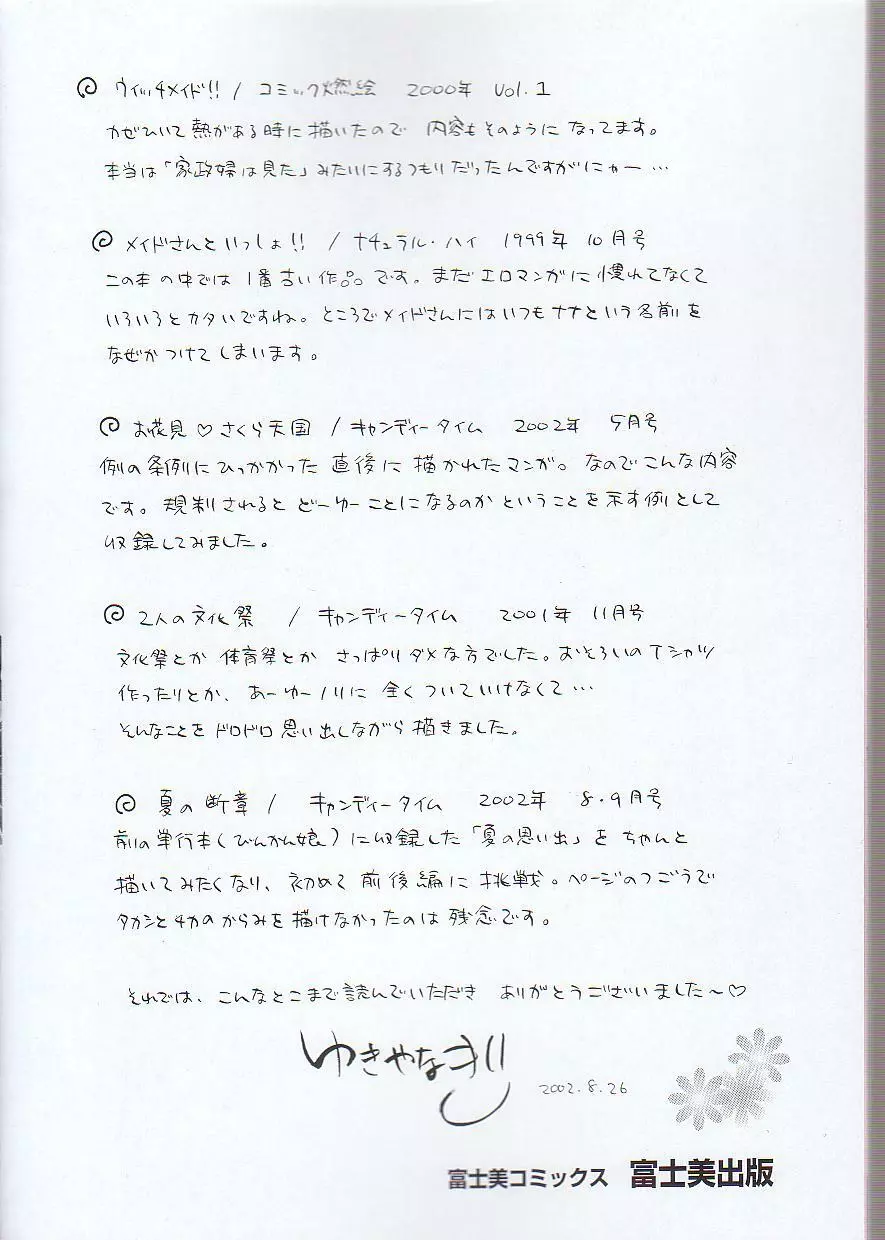 ウィッチメイド!! / コミック燃絵 2000年 Vol.1
かぜひいて熱がある時に描いたので 内容もそのようになってます。
本当は「家政婦は見た」みたいにするつもりだったんですがにゃー…
メイドさんといっしょ!! / ナチュラル・ハイ 1999年 10月号
この本の中では 1番古い作品です。まだエロマンガに慣れてなくて
いろいろとカタいですね。ところでメイドさんにはいつもナナという名前を
なぜかつけてしまいます。
お花見♡さくら天国 / キャンディータイム 2002年 5月号
例の条例にひっかかった直後に描かれたマンガ。なのでこんな内容
です。規制されるとどーゆーことになるのかということを示す例として
収録してみました。
2人の文化祭 / キャンディータイム 2001年 11月号
文化祭とか体育祭とか さっぱりダメな方でした。おそろいのTシャツ
作ったりとか、あーゆーノリに全くついていけなくて…
そんなことをドロドロ思い出しながら描きました。
夏の断章 / キャンディータイム 2002年 8・9月号
前の単行本(びんかん娘)に収録した「夏の思い出」をちゃんと
描いてみたくなり、初めて前後編に挑戦。ページのつごうで
タカシとチカのからみを描けなかったのは残念です。
それでは、こんなとこまで読んでいただき ありがとうございました～♡
ゆきやなぎ
2002.8.26
富士美コミックス 富士美出版